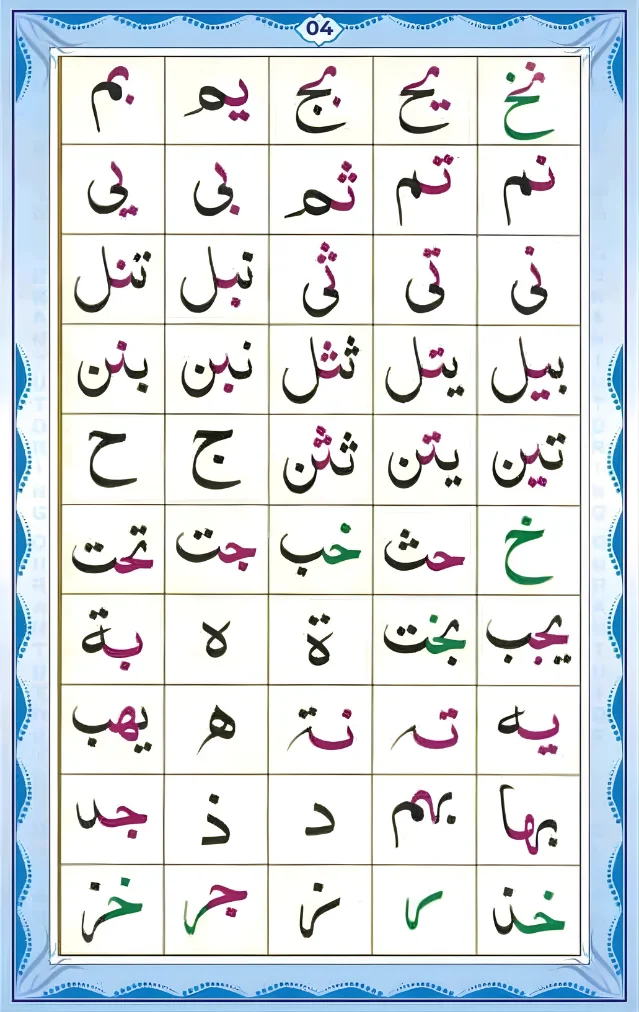 04
نخ يح بج يم بم
نم تم ثم بى يى
نى تى ثى نبل تنل
بيل يتل ثثل نبن بنن
تين يتن ثثن ج ح
خ حث خب جت تحت
يجب بخت ة ه بة
يه ته نة ه يهب
بها بهم د ذ جد
خذ ر ز جر خز